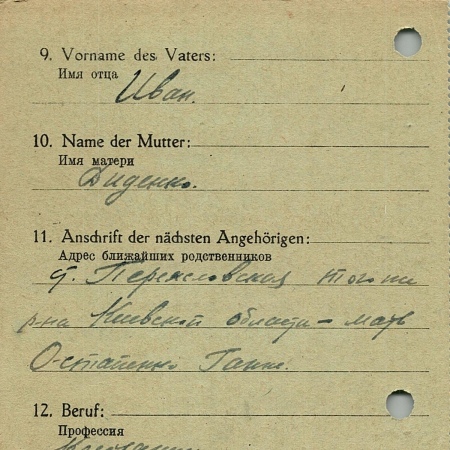 9. Vorname des Vaters:
Имя отца
Иван.
10. Name der Mutter:
Имя матери
Диденко.
11. Anschrift der nächsten Angehörigen:
Адрес ближайших родственников
р-на Киевской области - мать
Остапенко Ганна.
12. Beruf:
Профессия